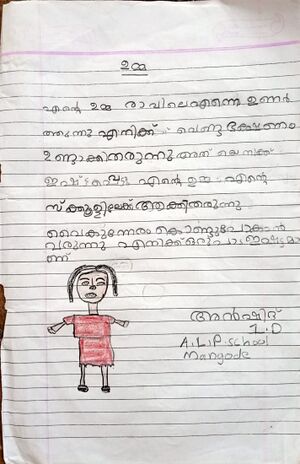 ഉമ്മ
എന്റെ ഉമ്മ രാവിലെ എന്നെ ഉണർ
ത്തുന്നു എനിക്ക് വേണ്ട ഭക്ഷണം
ഉണ്ടാക്കിതരുന്നു അത് എനിക്ക്
ഇഷ്ട്ടപ്പെട്ട എന്റെ ഉമ്മ എന്റെ
സ്ക്കൂളിലേക്ക് ആക്കിതരുന്നു
വൈകുന്നേരം കൊണ്ടുപോകാൻ
വരുന്നു എനിക്ക് ഒരുപാട ഇഷ്ടമാ
ണ്
അൻഷിദ്
1.D
A.L.P.school
Mangode